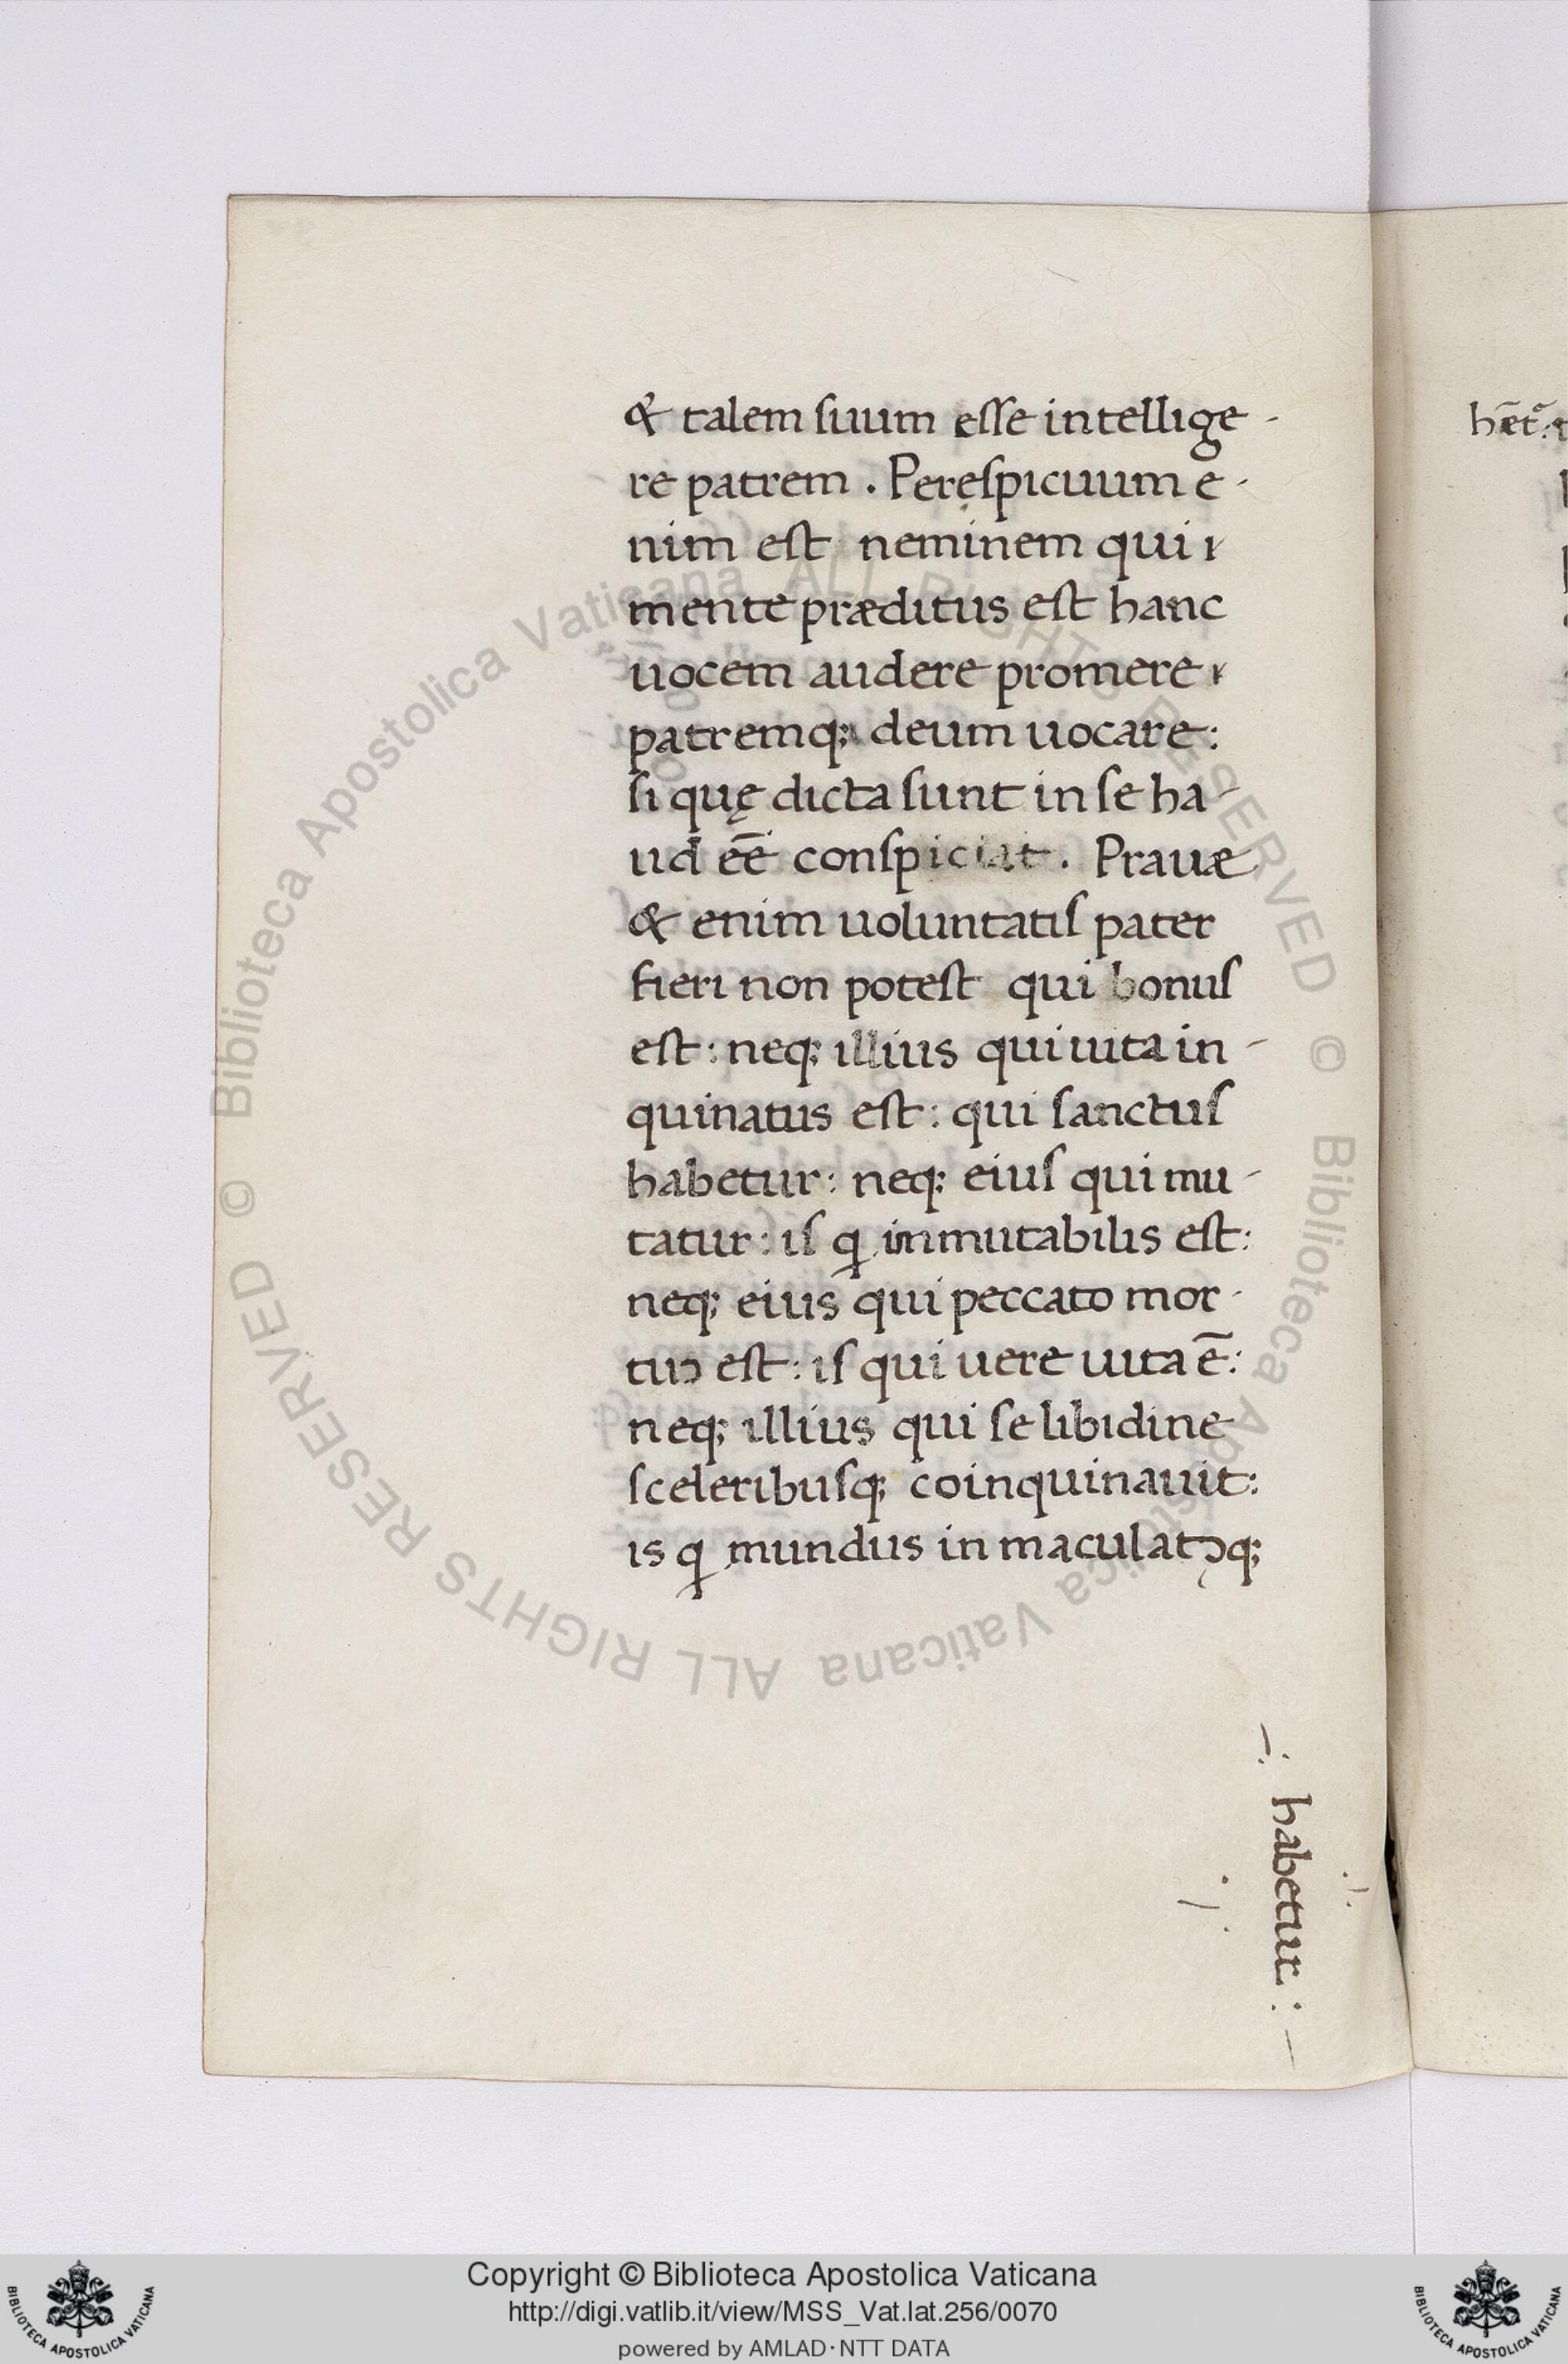 & talem suum esse intellige-
re patrem. Perespicuum e-
nim est neminem qui
mente præditus est hanc
uocem audere promere
patremq; deum uocare:
si quę dicta sunt in se ha-
ud ēē conspiciat. Prauæ
& enim uoluntatis pater
fieri non potest qui bonus
est: neq; illius qui uita in-
quinatus est: qui sanctus
habetur: neq; eius qui mu-
tatur: is qi inmutabilis est:
neq; eius qui peccato mor-
tuꝰ est: is qui uere uita ē:
neq; illius qui se libidine
sceleribusq; coinquinauit:
is qi mundus inmaculatꝰq;
habetur:
Copyright © Biblioteca Apostolica Vaticana
http://digi.vatlib.it/view/MSS_Vat.lat.256/0070
powered by AMLAD·NTT DATA
BIBLIOTECA APOSTOLICA VATICANA
BIBLIOTECA APOSTOLICA VATICANA
© Biblioteca Apostolica Vaticana ALL RIGHTS RESERVED © Biblioteca Apostolica Vaticana ALL RIGHTS RESERVED